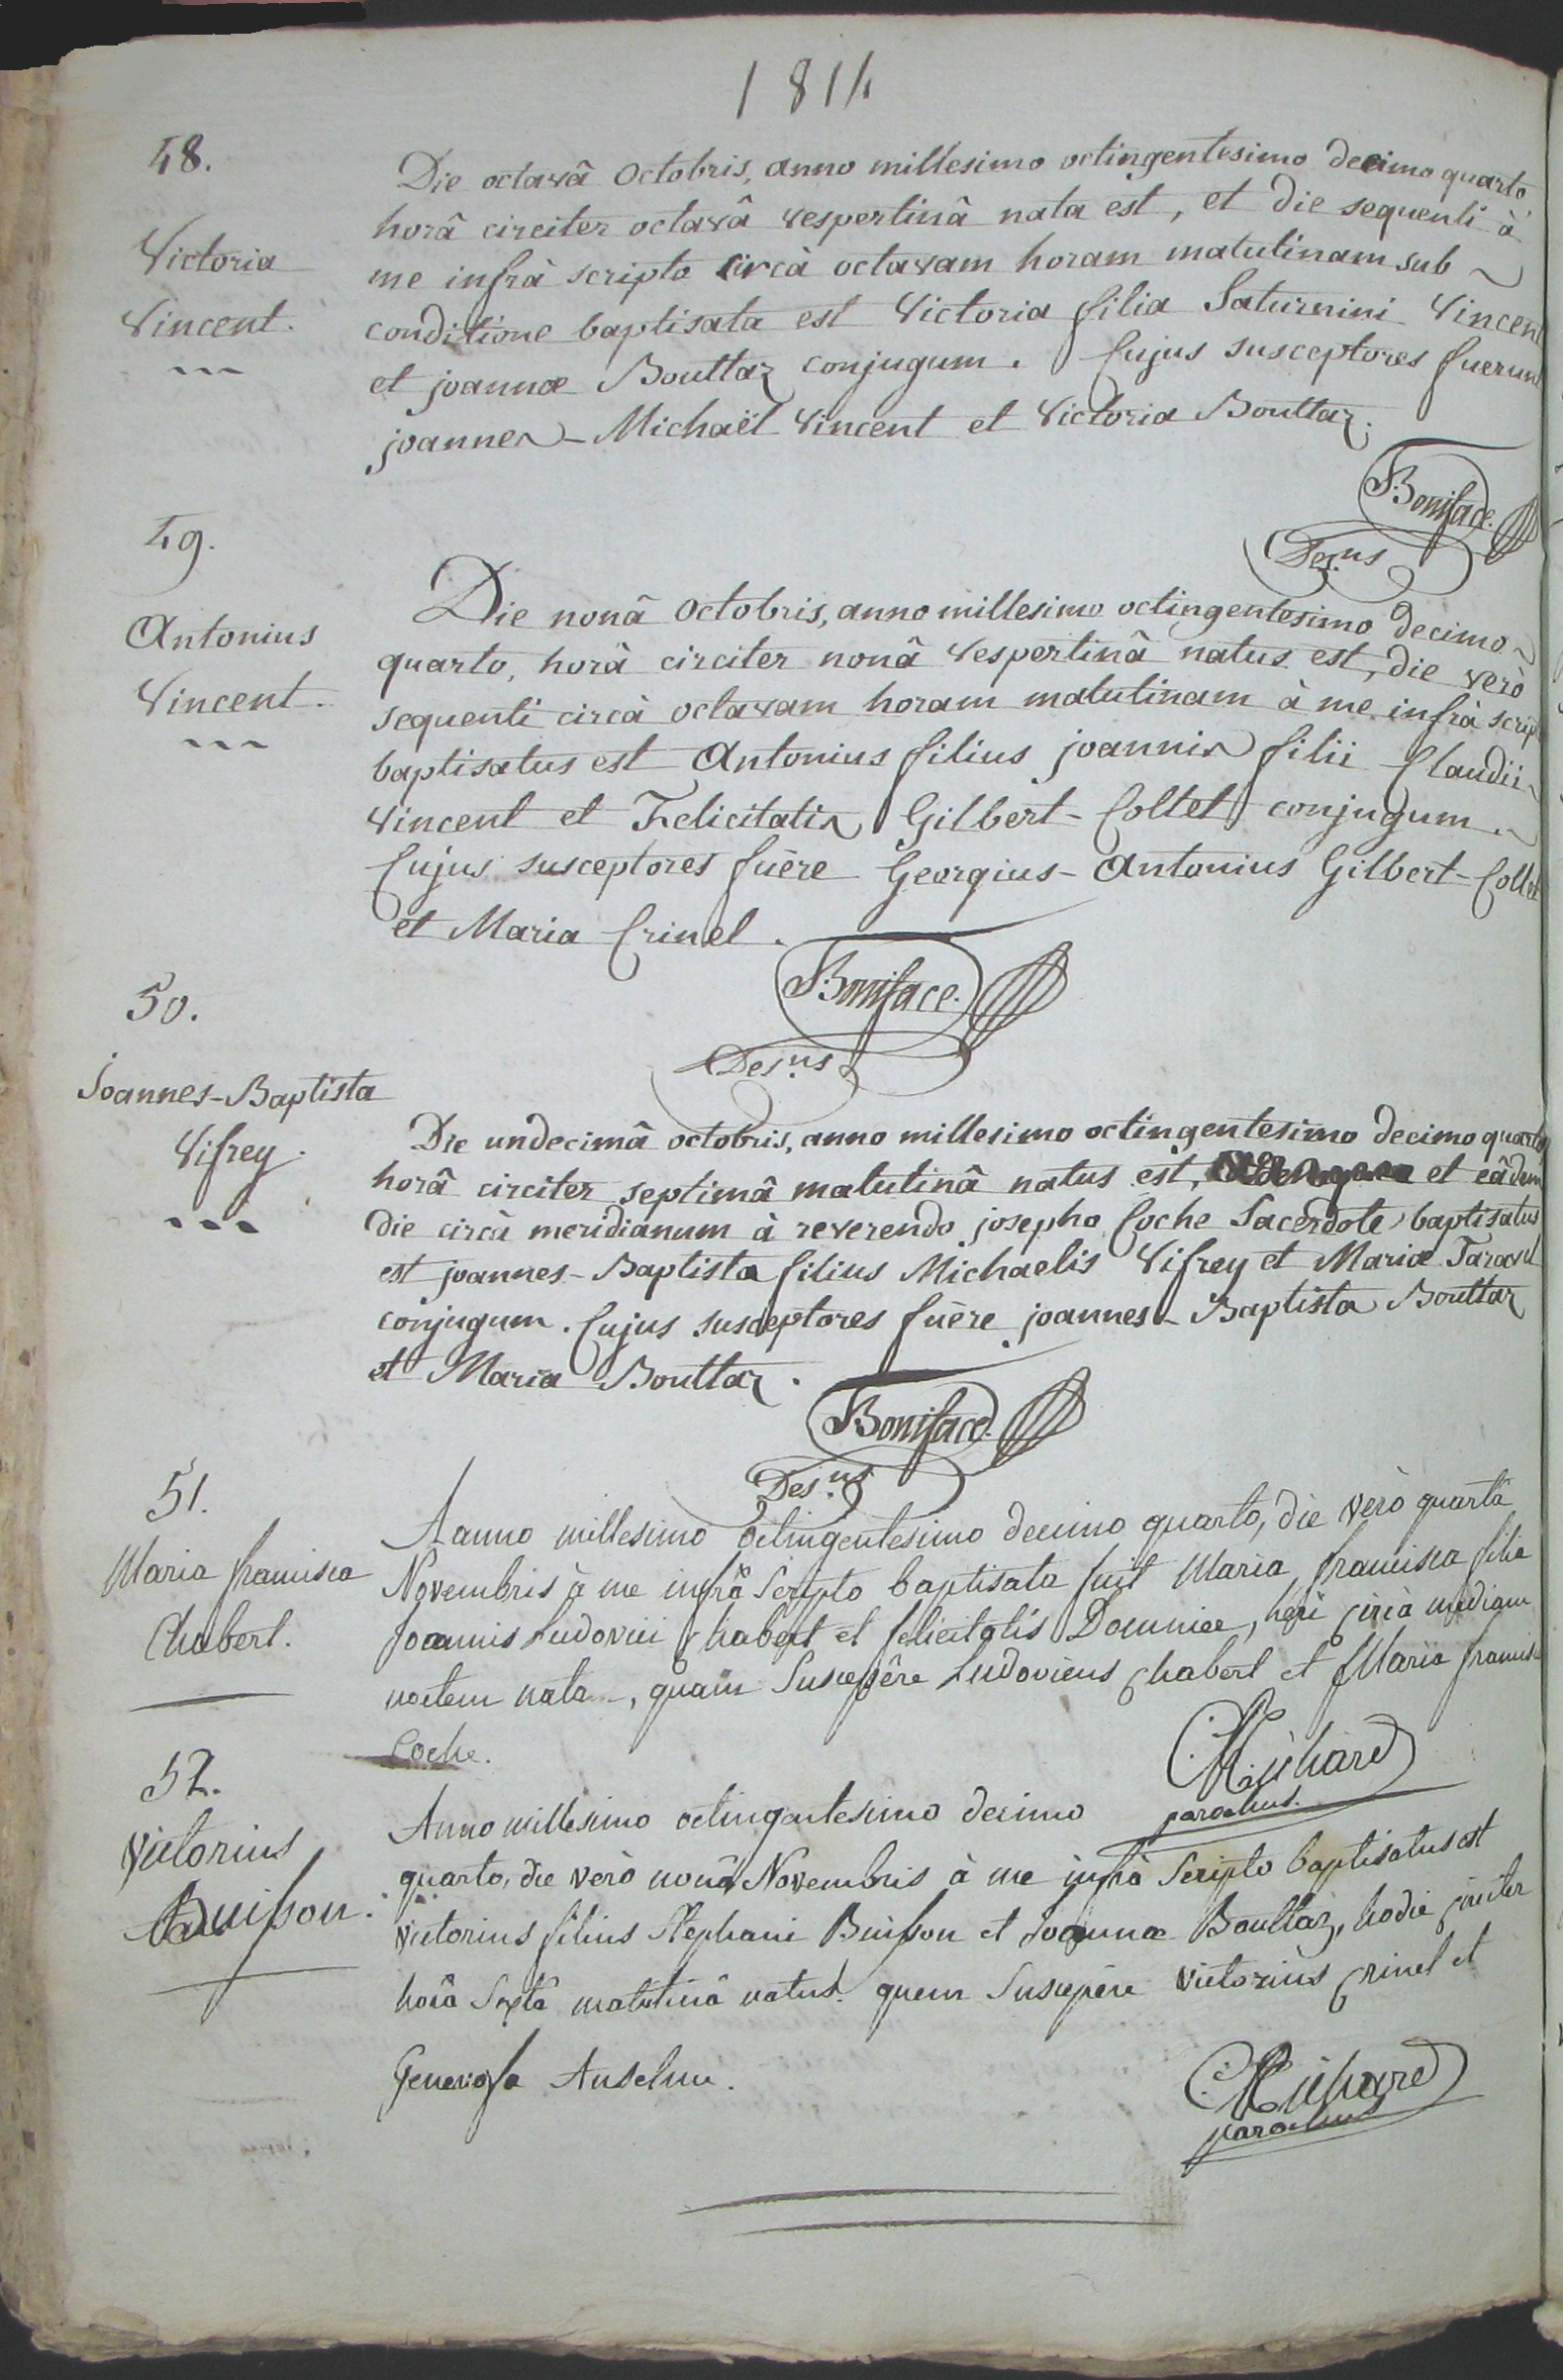 1814
48.
Victoria
Vincent.
Die octavâ Octobris, anno millesimo octingentesimo decimo quarto
horâ circiter octavâ vespertinâ nata est, et die sequenti à
me infrà scripto circà octavam horam matutinam sub
conditione baptisata est Victoria filia Saturnini Vincent
et joannæ Bouttaz conjugum. Cujus susceptores fuerunt
joannes-Michaël Vincent et Victoria Bouttaz.
Boniface.
Des.ns
49.
Antonius
Vincent.
Die nonâ Octobris, anno millesimo octingentesimo decimo
quarto, horâ circiter nonâ vespertinâ natus est, die verò
sequenti circà octavam horam matutinam à me infrà scrip
baptisatus est Antonius filius joannis filii Claudii
Vincent et Felicitatis Gilbert-Collet conjugum.
Cujus susceptores fuère Georgius-Antonius Gilbert-Collet
et Maria Crinel.
Boniface.
Des.ns
50.
Joannes-Baptista
Vifrey.
Die undecimâ octobris, anno millesimo octingentesimo decimo quarto
horâ circiter septimâ matutinâ natus est, et eâdem
die circà meridianum à reverendo josepho Coche Sacerdote baptisatus
est joannes-Baptista filius Michaelis Vifrey et Mariæ Taravel
conjugum. Cujus susceptores fuère joannes-Baptista Bouttaz
et Maria Bouttaz.
Boniface.
Des.ns
51.
Maria francisca
Chabert.
Anno millesimo octingentesimo decimo quarto, die verò quartâ
Novembris à me infrà Scripto baptisata fuit Maria francisca filia
Joannis Ludovici Chabert et felicitatis Domniæ, heri circà mediam
noctem nata, quam Suscepêre Ludovicus Chabert et Maria francisca
Coche.
Richard
parochus.
52.
Victorius
Buisson.
Anno millesimo octingentesimo decimo
quarto, die verò nonâ Novembris à me infrà Scripto baptisatus est
victorius filius Stephani Buisson et Joannæ Bouttaz, hodie circiter
horâ Sextâ matutinâ natus. quem Suscepêre Victorius Crinel et
Genevosa Anselme.
Richard
parochus